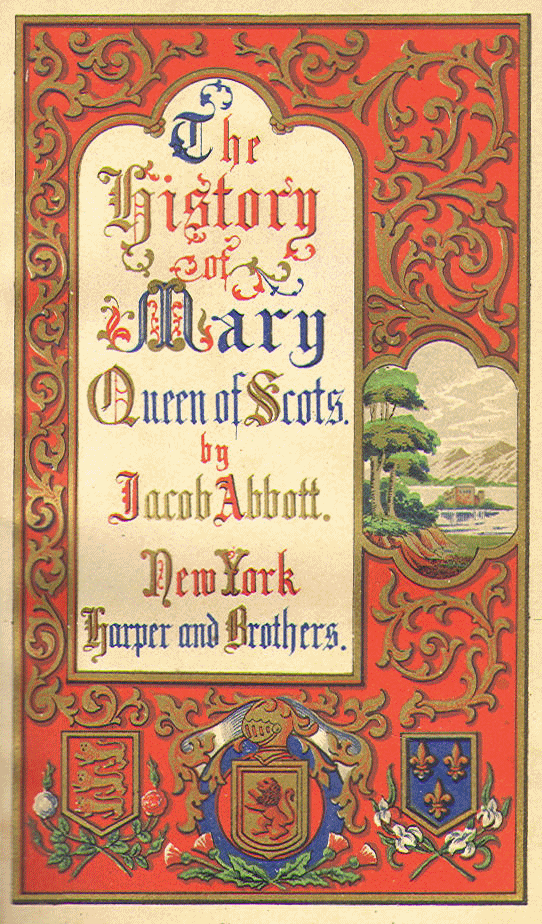 The
History
of
Mary
Queen of Scots.
by
Jacob Abbott.
New York
Harper and Brothers.